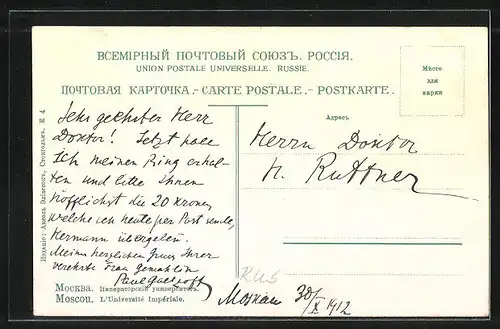 ВСЕМІРНЫЙ ПОЧТОВЫЙ СОЮЗЪ. РОССІЯ.
UNION POSTALE UNIVERSELLE. RUSSIE.
ПОЧТОВАЯ КАРТОЧКА.–CARTE POSTALE.–POSTKARTE.
Мѣсто
для
марки
Адресъ
Sehr geehrter Herr
Doktor! Jetzt habe
ich meinen Ring erhal-
ten und bitte Ihnen
höfflichst die 20 Kronen
welche ich heute per Post sende,
Hermann übergeben.
Meinen herzlichen Gruss Ihrer
verehrte Frau gemahlin
Paul
Herrn Doktor
H. Ruttner
RUS
Moskau 30/X 1912
Москва. Императорскій университетъ.
Moscou. L'Université Impériale.
Изданіе: Акц. О-во Стокгольмъ. К 4